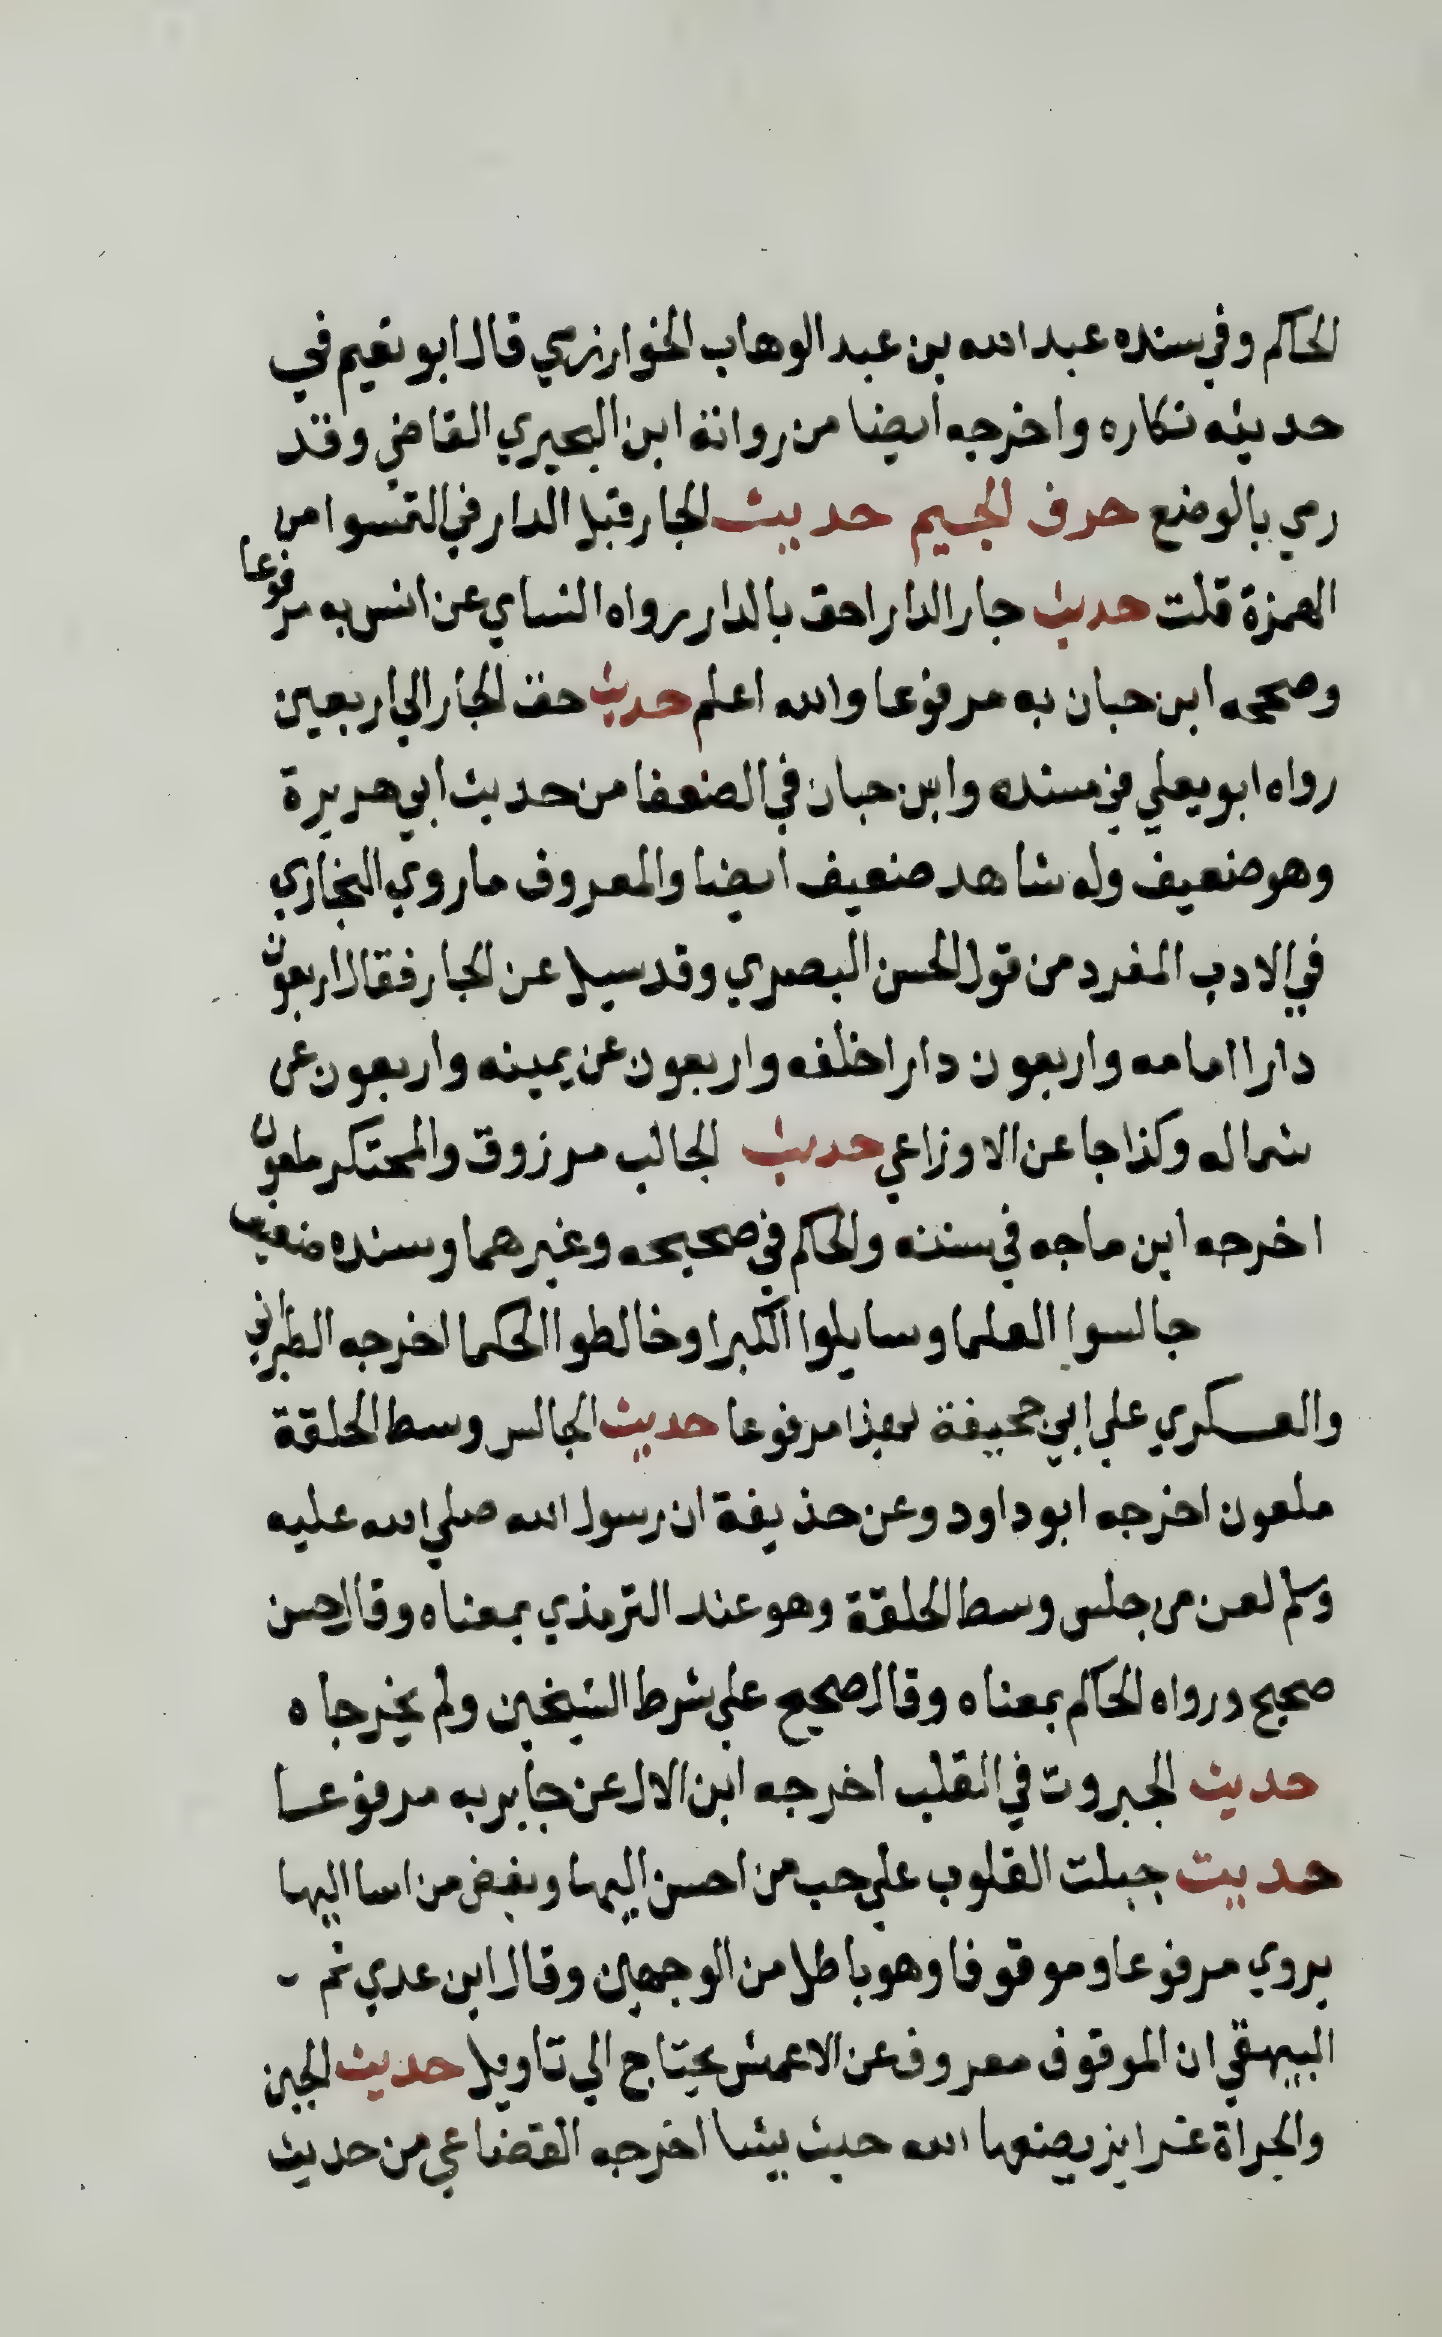 الحاكم وفي سنده عبد الله بن عبد الوهاب الخوارزمي قال ابو نعيم في
حديثه نكاره واخرجه ايضا من رواية ابن البحيري القاضي وقد
رمي بالوضع حرف الجيم حديث الجار قبل الدار في التمسوا من
الهمزة قلت حديث جار الدار احق بالدار رواه النساي عن انس به مرفوعا
وصححه ابن حبان به مرفوعا والله اعلم حديث حق الجار الي اربعين
رواه ابو يعلي في مسنده وابن حبان في الضعفا من حديث ابي هريرة
وهو ضعيف وله شاهد ضعيف ايضا والمعروف ما روي البخاري
في الادب المفرد من قول الحسن البصري وقد سيل عن الجار فقال اربعون
دارا امامه واربعون دارا خلفه واربعون عن يمينه واربعون عن
شماله وكذا جا عن الاوزاعي حديث الجالب مرزوق والمحتكر ملعون
اخرجه ابن ماجه في سننه والحاكم في صحيحه وغيرهما وسنده ضعيف
جالسوا العلما وسايلوا الكبرا وخالطوا الحكما اخرجه الطبراني
والعسكري علي ابي جحيفة بهذا مرفوعا حديث الجالس وسط الحلقة
ملعون اخرجه ابو داود وعن حذيفة ان رسول الله صلي الله عليه
وسلم لعن من جلس وسط الحلقة وهو عند الترمذي بمعناه وقال حسن
صحيح ورواه الحاكم بمعناه وقال صحيح علي شرط الشيخين ولم يخرجاه
حديث الجبروت في القلب اخرجه ابن الال عن جابر به مرفوعا
حديث جبلت القلوب علي حب من احسن اليها وبغض من اسا اليها
يروي مرفوعا وموقوفا وهو باطل من الوجهين وقال ابن عدي ثم
البيهقي ان الموقوف معروف عن الاعمش يحتاج الي تاويل حديث الجبن
والجراة غرايز يضعها الله حيث يشا اخرجه القضاعي من حديث